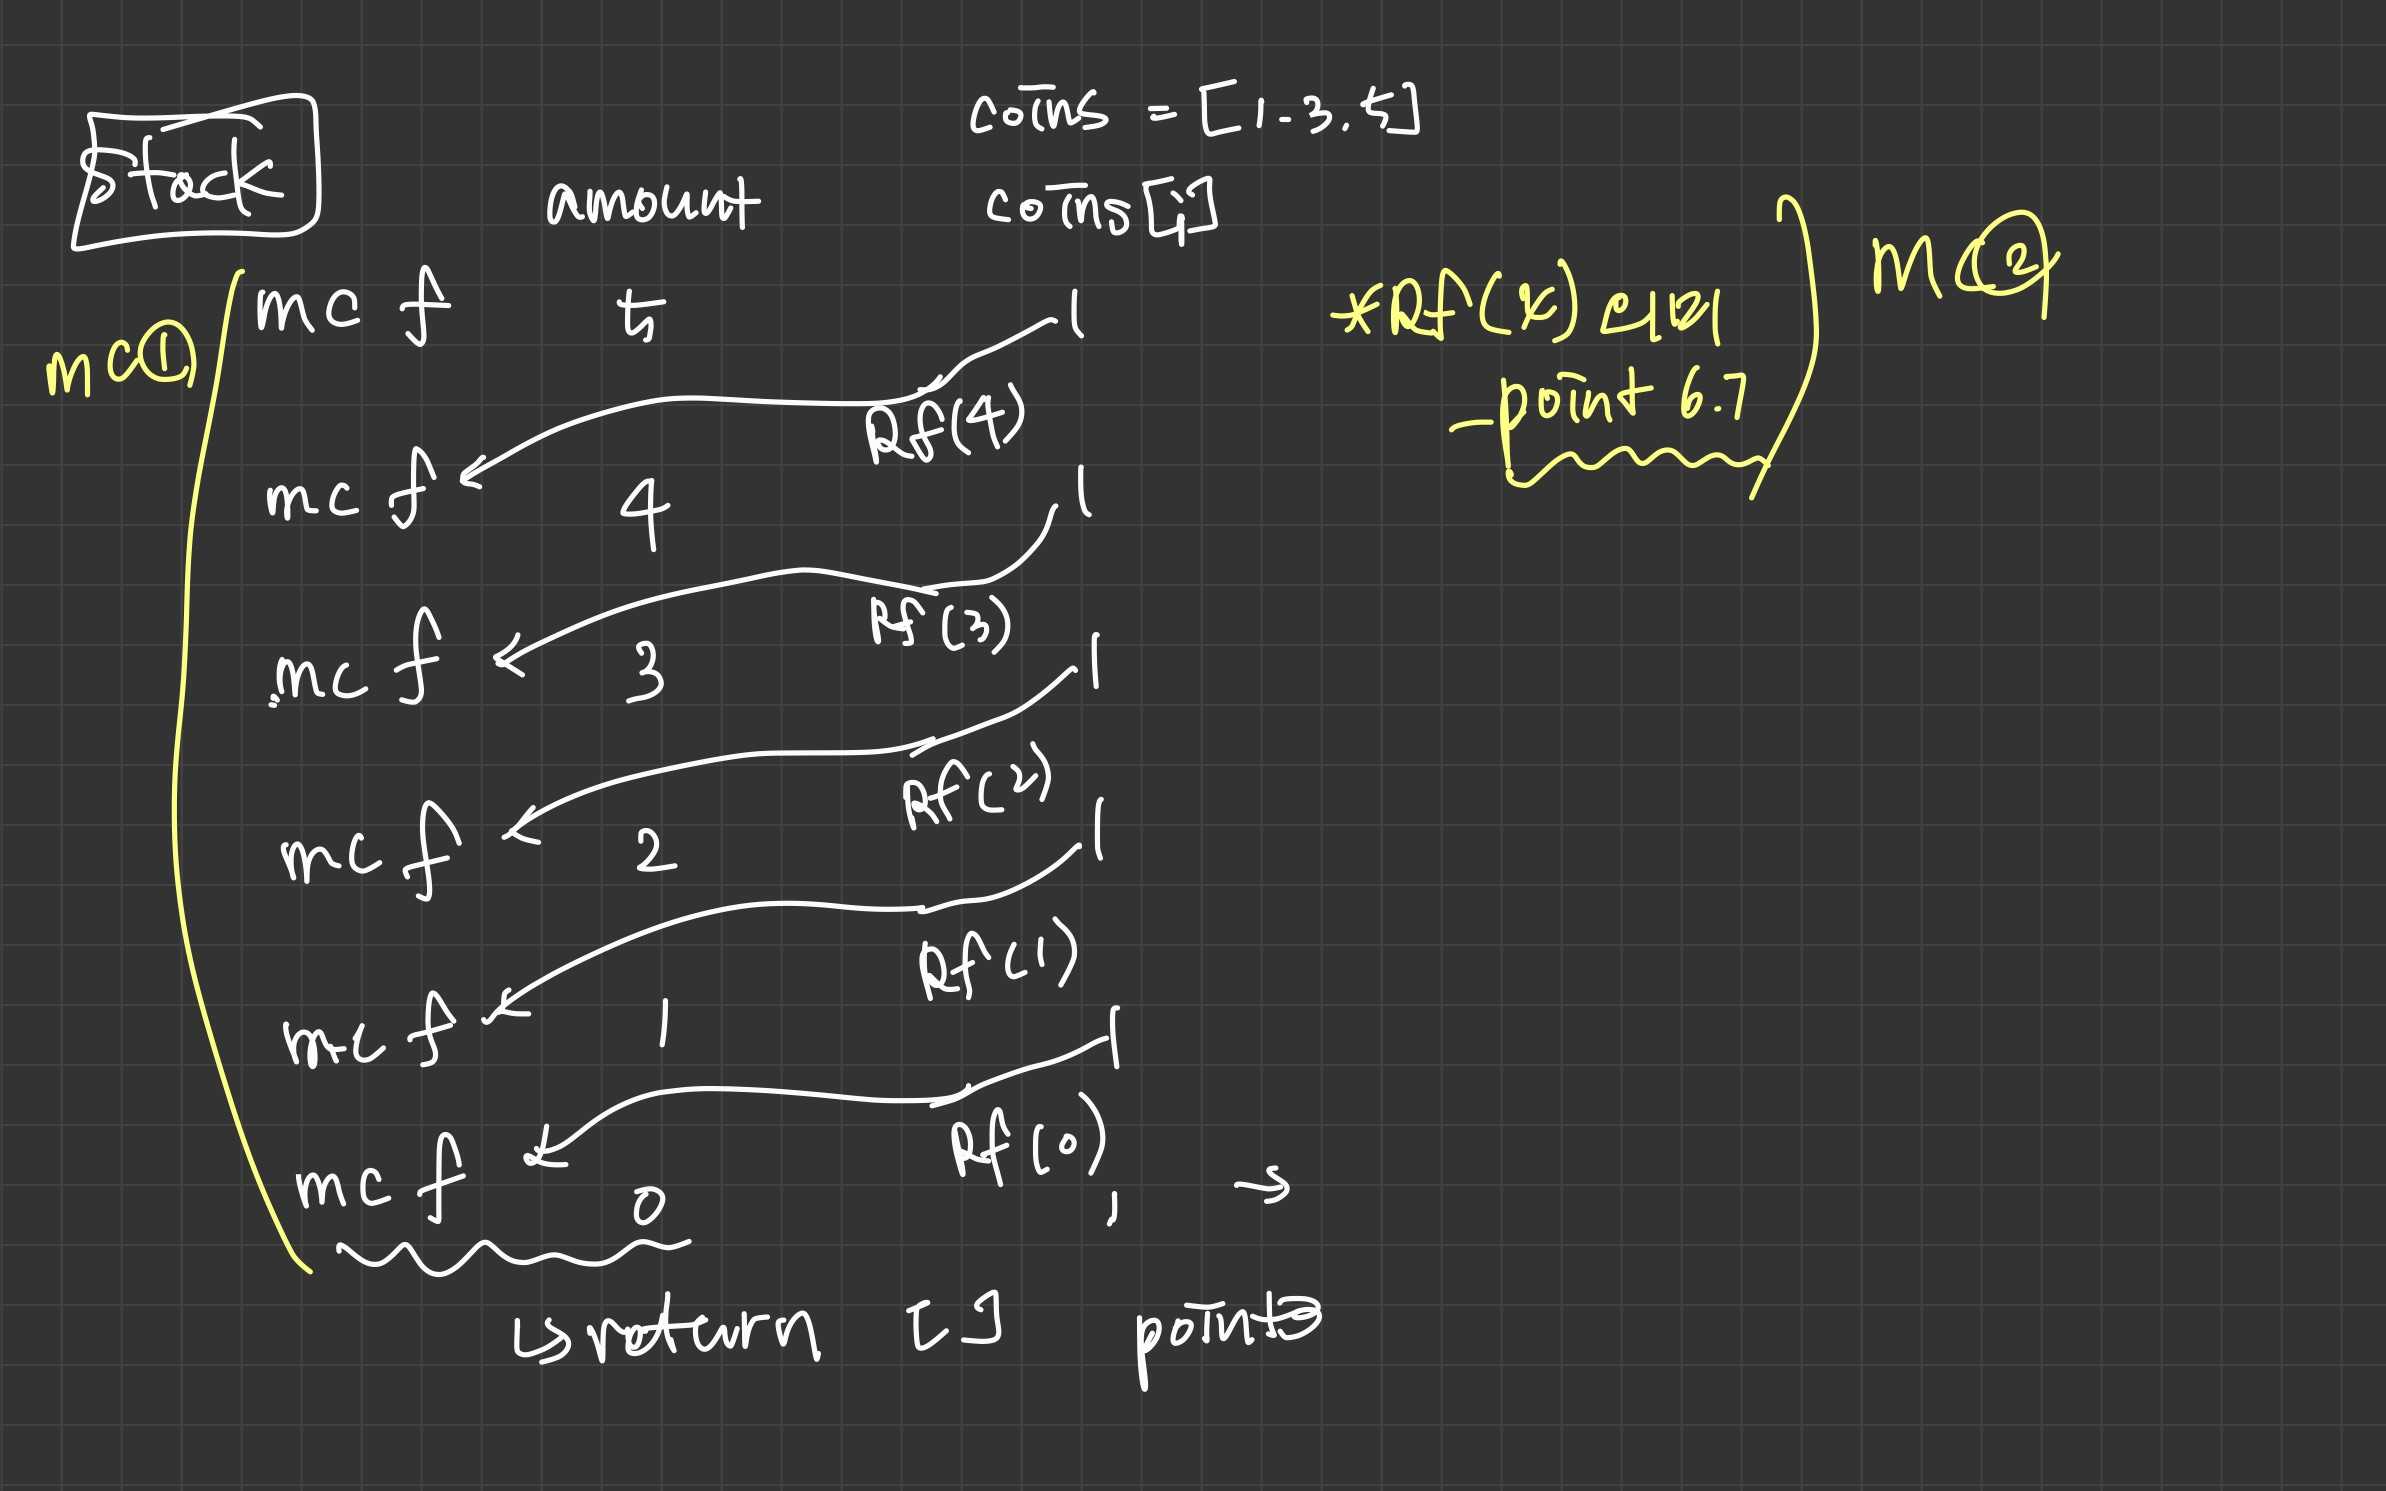 Stack
coins = [1.3.5]
amount coins[i]
mc① mcf 5 1
Rf(4)
mcf 4 1
Rf(3)
mcf 3 1
Rf(2)
mcf 2 1
Rf(1)
mcf 1 1
Rf(0)
mcf 0 , →
↳ return [ ] point
*Rf(x)
- point 6.7
mc②